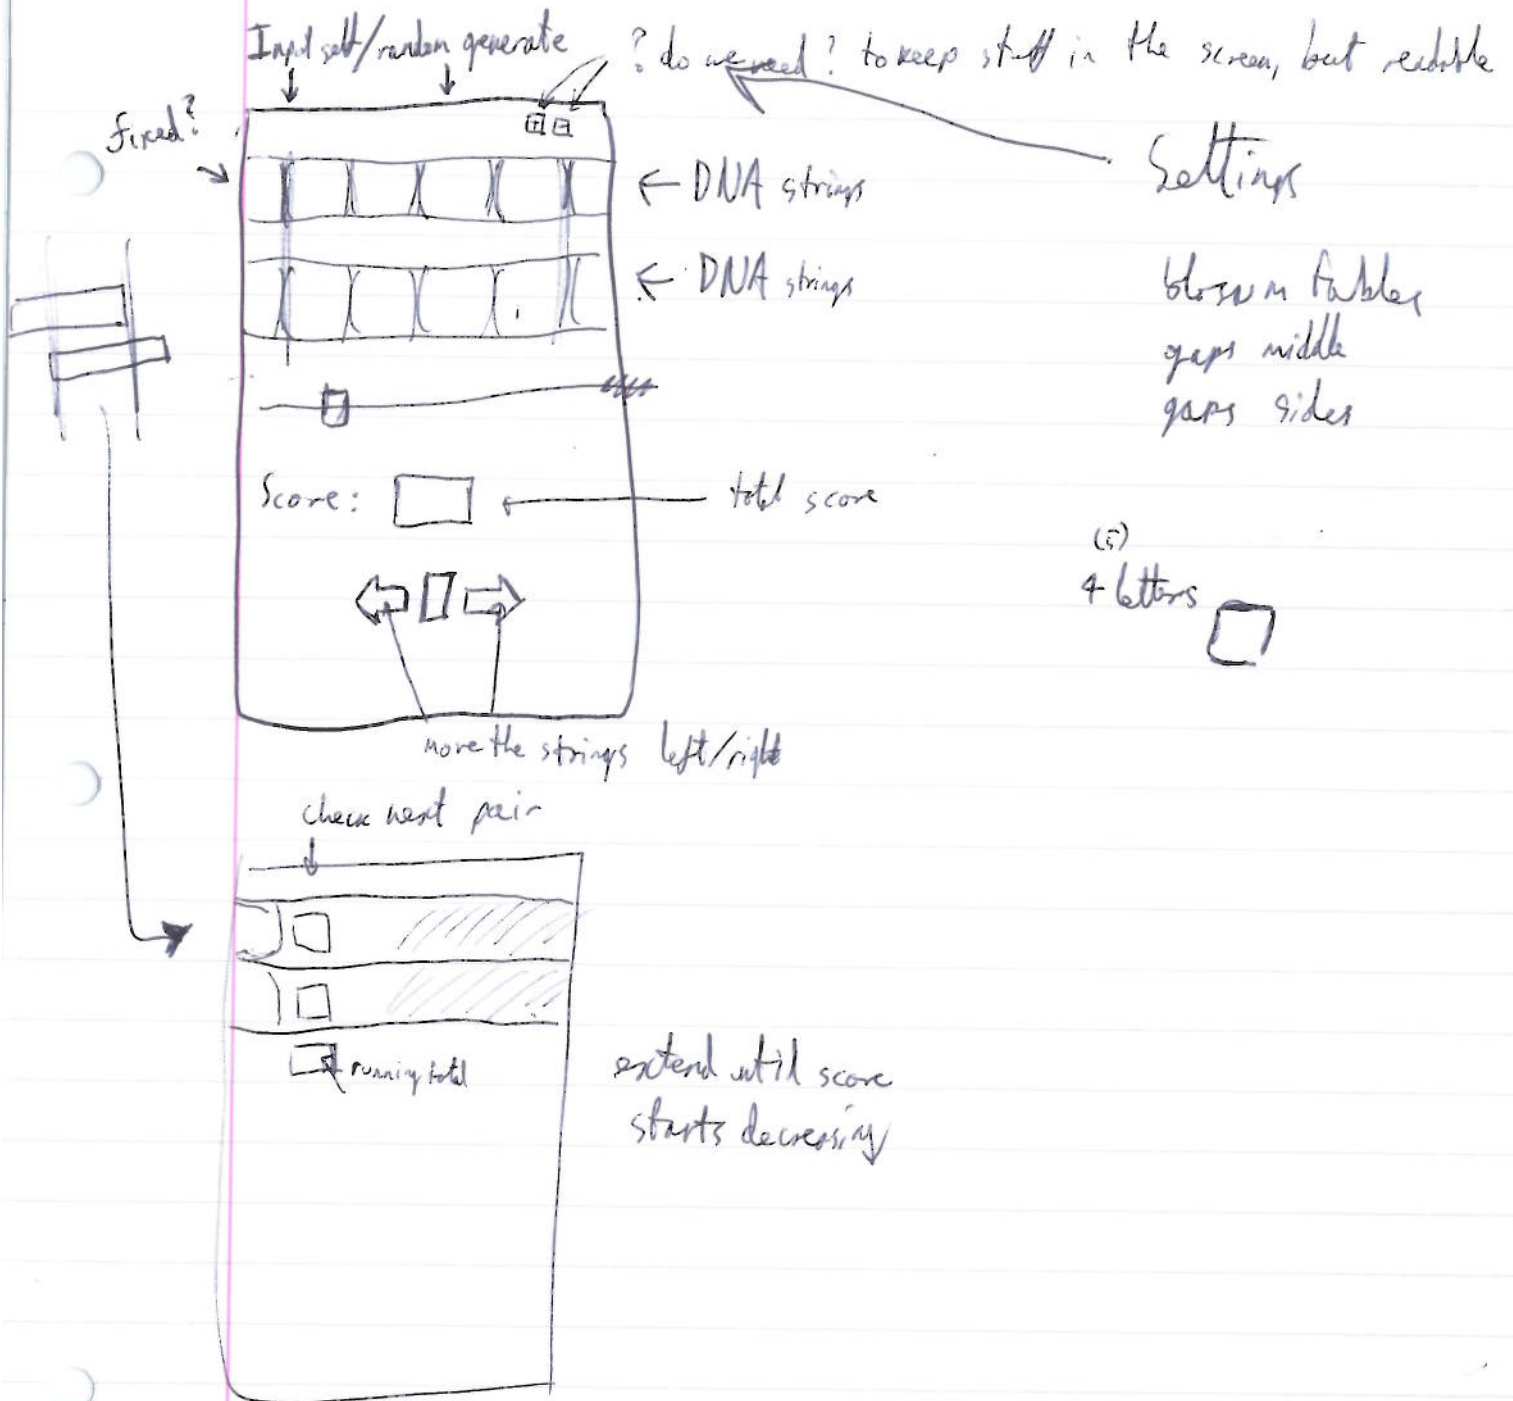 Input self/random generate
? do we need? to keep stuff in the screen, but readable
fixed?
+ -
← DNA strings
Settings
← DNA strings
blosum tables
gaps middle
gaps sides
Score:
total score
(5)
4 letters
move the strings left/right
check next pair
running total
extend until score
starts decreasing